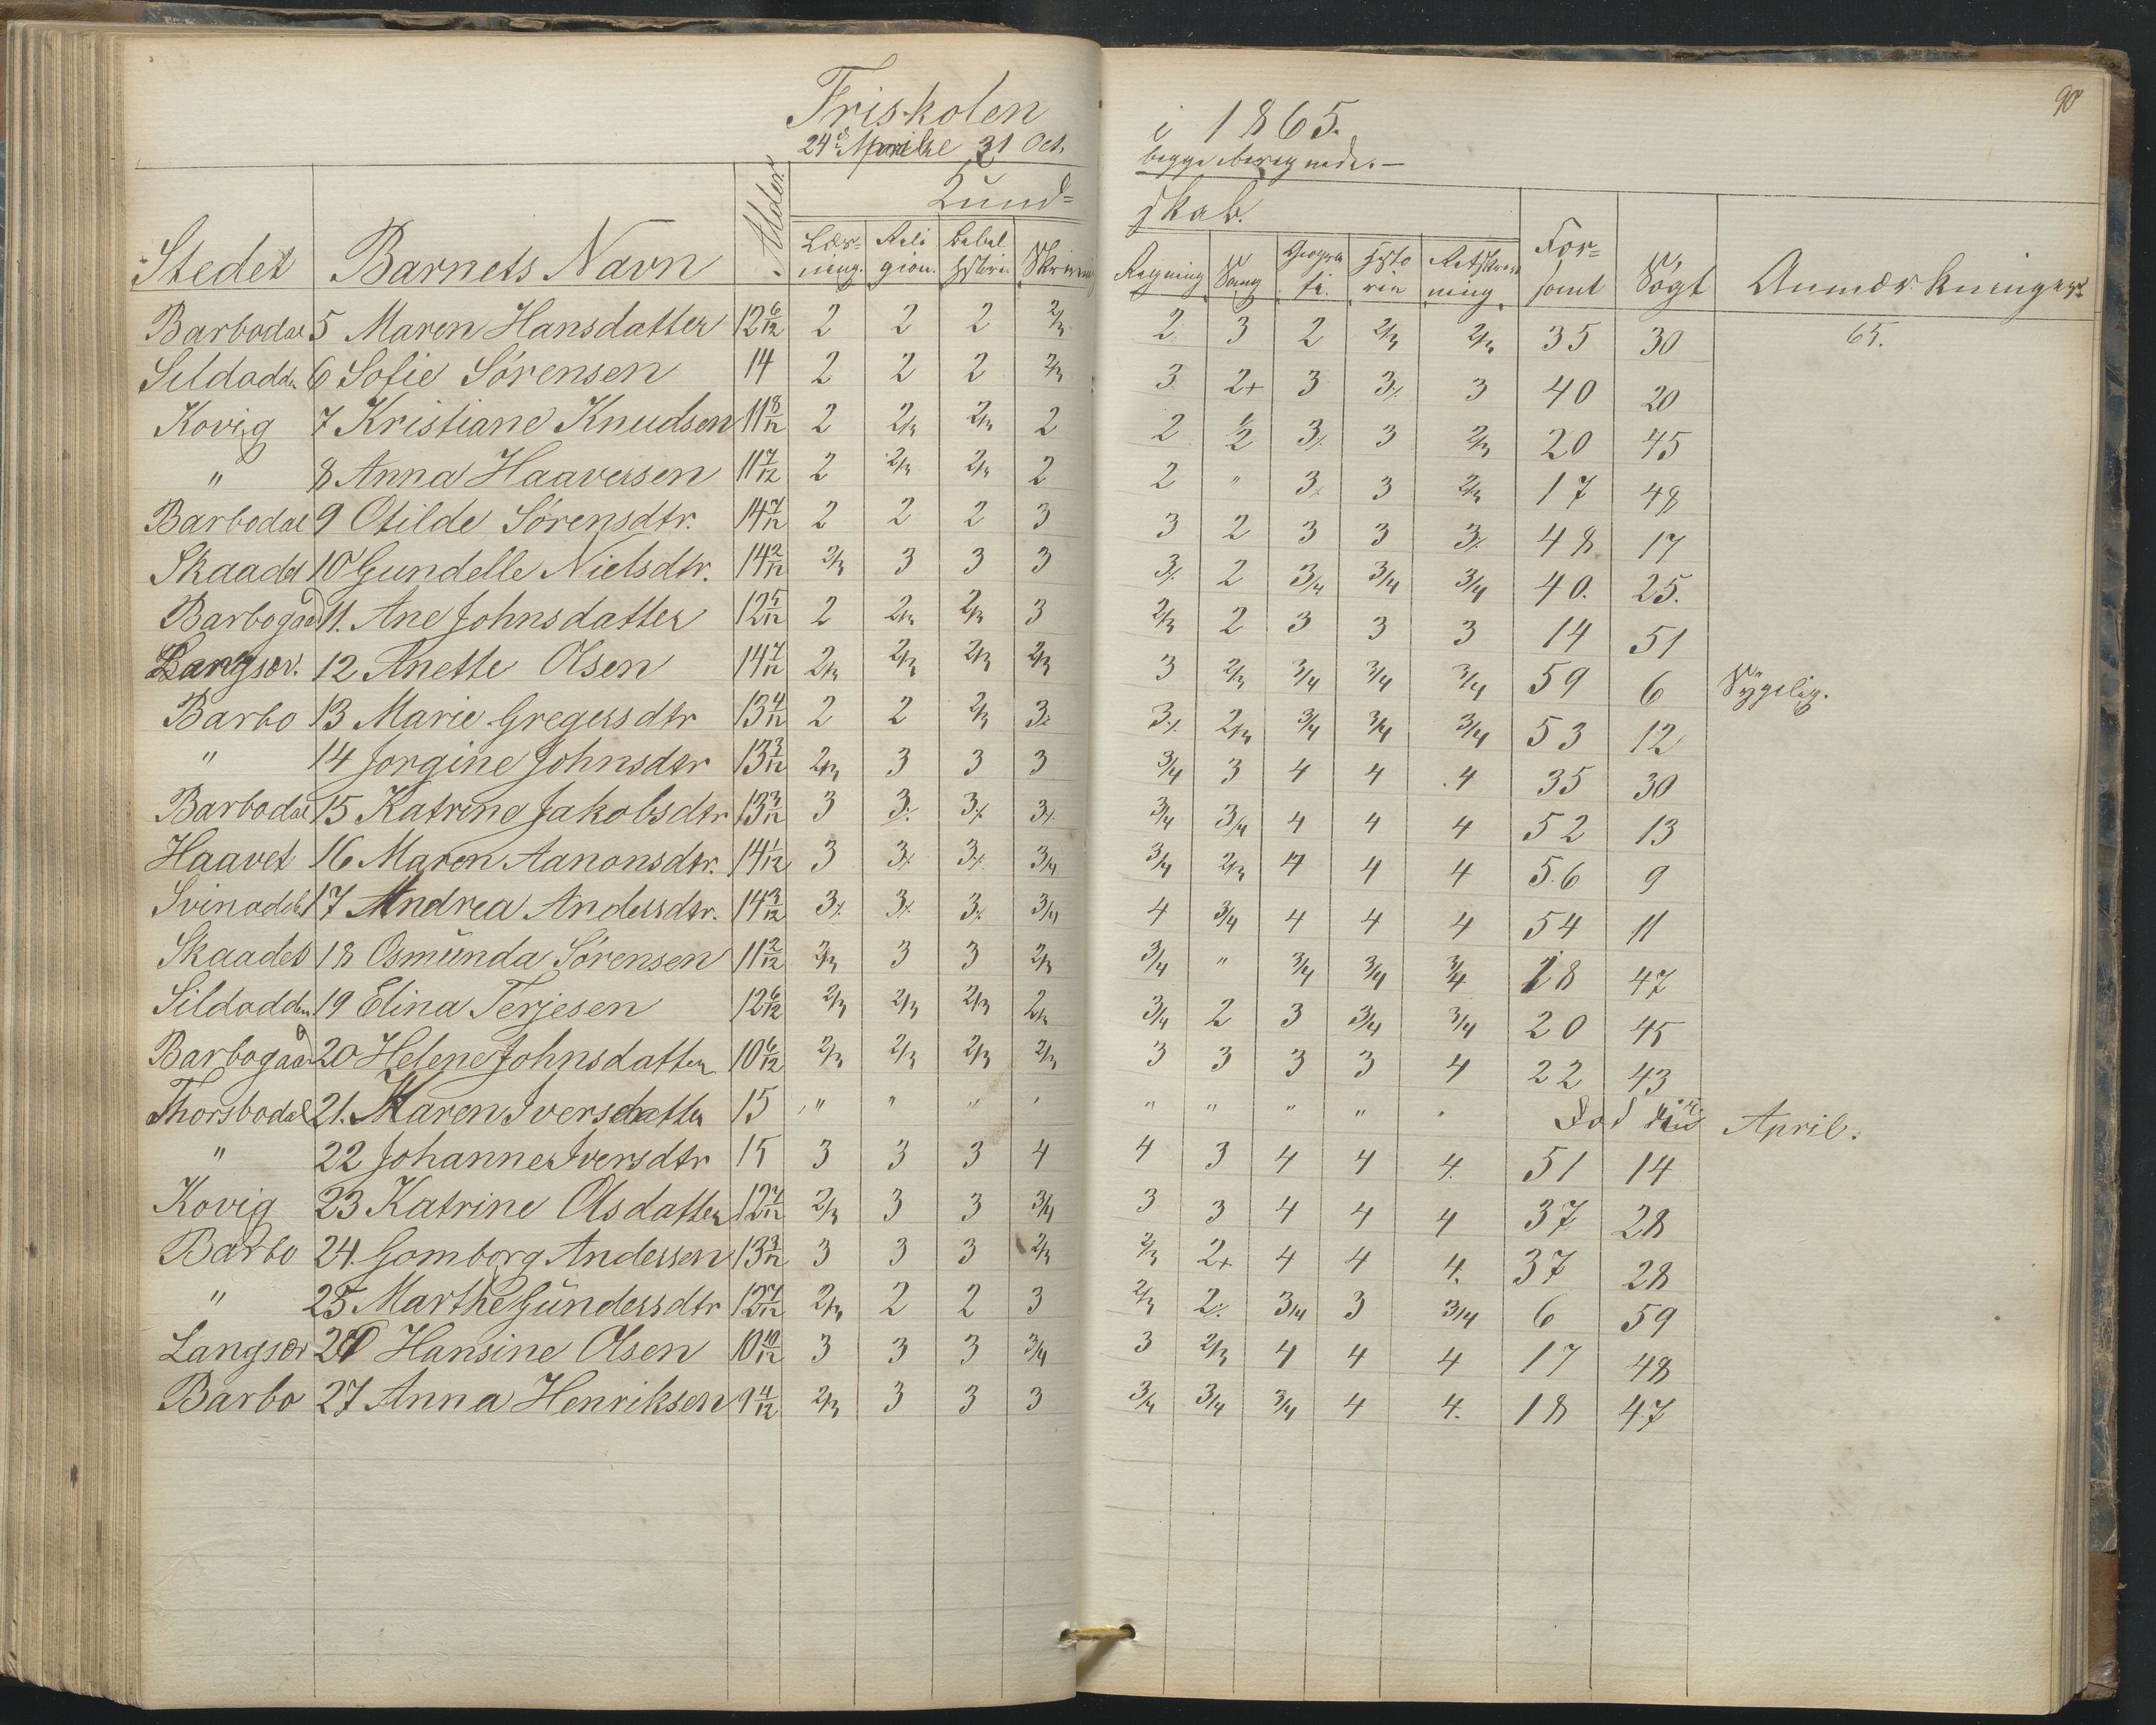 90
Friskolen i 1865.
24de April til 31 Oct. begge iberegnede. —
Kund= skab.
Stedet Barnets Navn Alder. Læs= ning. Reli gion. Bibel Historie Skrivning Regning Sang Geogra fi. Histo rie Retskriv ning For= sømt Søgt Anmærkninger
Barbodal 5 Maren Hansdatter 12 6/12 2 2 2 2/3 2 3 2 2/3 2/3 35 30 65.
Sildodden 6 Sofie Sörensen 14 2 2 2 2/3 3 2+ 3 3% 3 40 20
Kovig 7 Kristiane Knudsen 11 8/12 2 2/3 2/3 2 2 1/2 3% 3 2/3 20 45
" 8 Anna Haaversen 11 7/12 2 2/3 2/3 2 2 " 3% 3 2/3 17 48
Barbodal 9 Otilde Sörensdtr. 14 7/12 2 2 2 3 3 2 3 3 3% 48 17
Skaadet 10 Gundelle Nielsdtr. 14 2/12 2/3 3 3 3 3% 2 3/4 3/4 3/4 40. 25.
Barbogaard 11. Ane Johnsdatter 12 5/12 2 2/3 2/3 3 2/3 2 3 3 3 14 51
Langsæ. 12 Anette Olsen 14 7/12 2/3 2/3 2/3 2/3 3 2/3 3/4 3/4 3/4 59 6 Sygelig.
Barbo 13 Marie Gregersdtr 13 4/12 2 2 2/3 3% 3% 2/3 3/4 3/4 3/4 53 12
" 14 Jorgine Johnsdtr 13 3/12 2/3 3 3 3 3/4 3 4 4 4 35 30
Barbodal 15 Katrine Jakobsdtr 13 3/12 3 3% 3% 3% 3/4 3/4 4 4 4 52 13
Haavet 16 Maren Aanonsdtr. 14 1/12 3 3% 3% 3/4 3/4 2/3 4 4 4 56 9
Svinodden 17 Andrea Andersdtr. 14 3/12 3% 3% 3% 3/4 4 3/4 4 4 4 54 11
Skaadet 18 Osmunda Sörensen 11 2/12 2/3 3 3 2/3 3/4 " 3/4 3/4 3/4 18 47
Sildodden 19 Elina Terjesen 12 6/12 2/3 2/3 2/3 2/3 3/4 2 3 3/4 3/4 20 45
Barbogaard 20 Helene Johnsdatter 10 6/12 2/3 2/3 2/3 2/3 3 3 3 3 4 22 43
Thorsbodal 21. Karen Iversdatter 15 " " " " " " " " " Död April.
" 22 Johanne Iversdtr 15 3 3 3 4 4 3 4 4 4. 51 14
Kovig 23 Katrine Olsdatter 12 7/12 2/3 3 3 3/4 3 3 4 4 4 37 28
Barbo 24. Gomborg Andersen 13 3/12 3 3 3 2/3 2/3 2+ 4 4 4. 37 28
" 25 Marthe Gundersdtr 12 7/12 2/3 2 2 3 2/3 2% 3/4 3 3/4 6 59
Langsæ 26 Hansine Olsen 10 10/12 3 3 3 3/4 3 2/3 4 4 4 17 48
Barbo 27 Anna Henriksen 9 4/12 2/3 3 3 3 3/4 3/4 3/4 4 4. 18 47